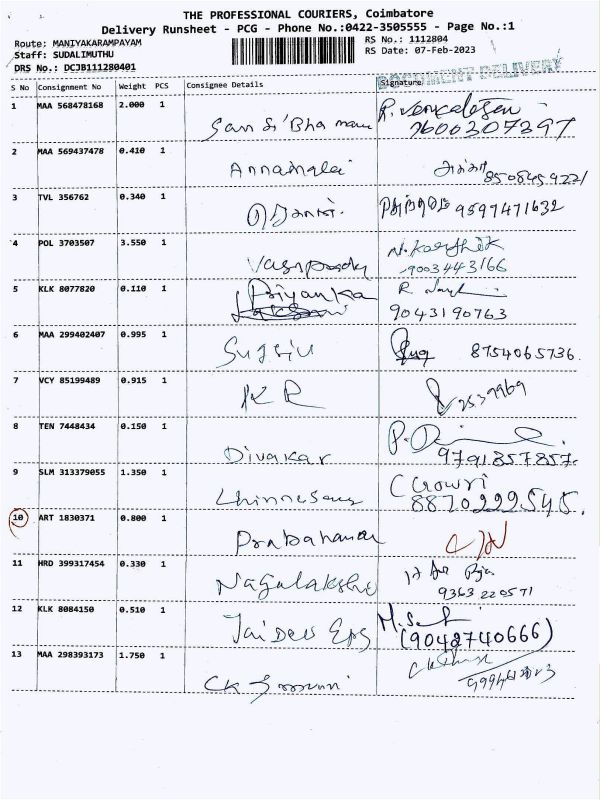 THE PROFESSIONAL COURIERS, Coimbatore
Delivery Runsheet - PCG - Phone No.:0422-3505555 - Page No.:1
Route: MANIYAKARAMPAYAM
RS No.: 1112804
Staff: SUDALIMUTHU
RS Date: 07-Feb-2023
DRS No.: DCJB111280401
DOCUMENT DELIVERY
S No Consignment No Weight PCS Consignee Details Signature
1 MAA 568478168 2.000 1 R. Venkatesan
7600307397
2 MAA 569437478 0.410 1 Annamalai
8508459221
3 TVL 356762 0.340 1 9597471632
4 POL 3703507 3.550 1 N. Karthik
9003443166
5 KLK 8077820 0.110 1 Priyanka R
9043190763
6 MAA 299402407 0.995 1 8754065736
7 VCY 85199489 0.915 1 KR
8 TEN 7448434 0.150 1 Divakar
9791857857
9 SLM 313379055 1.350 1 C Gowri
8870222545.
10 ART 1830371 0.800 1
11 HRD 399317454 0.330 1
9363220571
12 KLK 8084150 0.510 1 Jai Dev
(9048740666)
13 MAA 298393173 1.750 1 CK